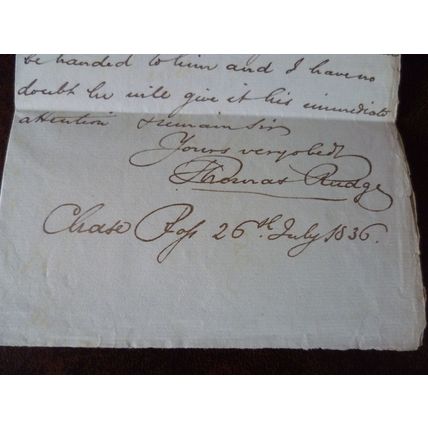 be handed to him and I have no
doubt he will give it his immediate
attention & remain Sir
Yours very obedt
Thomas Rudge
Chase Ross 26th July 1836.